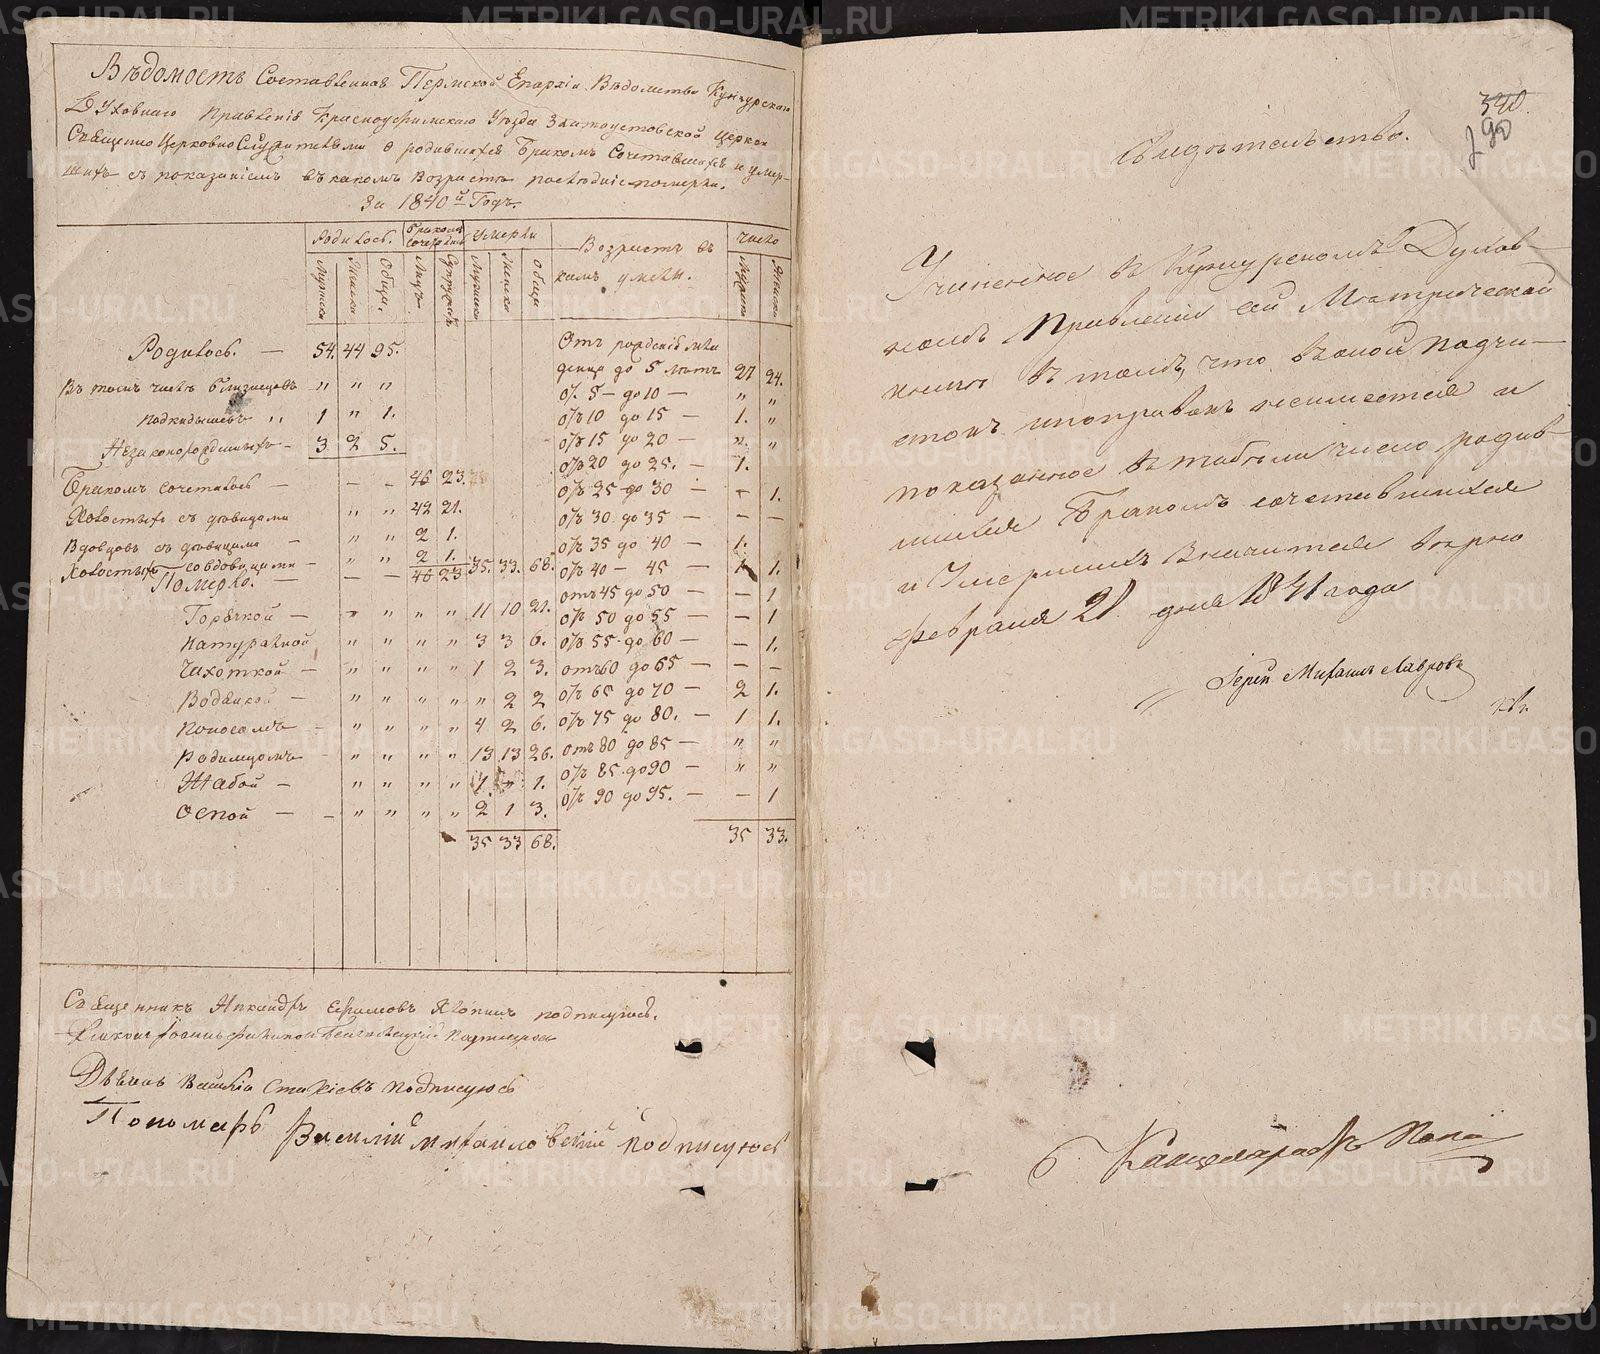 Вѣдомость Составленная Пермской Епархіи Вѣдомства Кунгурскаго
Духовнаго Правленія Красноуфимскаго Уѣзда Златоустовской Церкви
Священно Церковно Служителями о родившихся Бракомъ Сочетавшихся и умер-
шихъ съ показаніемъ въ какомъ возрастѣ послѣдніе померли.
За 1840й Годъ.
Родилось. Бракомъ сочетались Умерли Возрастъ въ число
Мужска Женска Обще. Лицъ Супружествъ Мужска Женска Обще какъ умерли. Мужска Женска
Родилось. — 54. 44 95.
Въ томъ числѣ близнецовъ „ „ „
подкидышевъ „ 1 „ 1.
Незаконорожденныхъ — 3 2 5.
Бракомъ сочеталось — — — 46 23.
Холостыхъ съ дѣвицами „ „ 42 21.
Вдовцовъ съ дѣвицами — „ „ 2 1.
Холостыхъ со вдовицами — „ „ 2 1.
Померло. — — — 46 23 35. 33. 68.
Горячкой — „ „ „ „ 11 10 21.
Натуральной „ „ „ „ 3 3 6.
Чахоткой — „ „ „ „ 1 2 3.
Водяной — „ „ „ „ „ 2 2
Поносомъ — „ „ „ „ 4 2 6.
Родимцомъ — „ „ „ „ 13 13 26.
Жабой — „ „ „ „ 1. „ 1.
Оспой — — „ „ „ „ 2 1 3.
35 33 68.
Отъ рожденія мла
денца до 5 лѣтъ 27 24.
отъ 5 — до 10 — „ „
отъ 10 до 15 — 1. „
отъ 15 до 20 — „ „
отъ 20 до 25. — 1.
отъ 25 до 30 — — 1.
отъ 30 до 35 — — —
отъ 35 до 40 — 1.
отъ 40 — 45 — 1 1.
отъ 45 до 50 — — 1
отъ 50 до 55 — — 1
отъ 55 до 60 — — 1.
отъ 60 до 65 — — —
отъ 65 до 70 — 2 1.
отъ 75 до 80. — 1 1.
отъ 80 до 85 — „ „
отъ 85 до 90 — „ „
отъ 90 до 95. — — 1
35 33.
Священникъ Никандръ Ефимовъ Яхонинъ подписуюсь.
Діаконъ Іоаннъ
Дьячокъ Василій Стахіевъ подписуюсь
Пономарь Василій михайловскій подписуюсь
340.
290
Свидѣтельство.
Учиненное въ Кунгурскомъ Духов-
номъ Правленіи сей Метрической
книги въ томъ, что въ оной подчи-
стокъ и поправокъ неимеется и
показанное въ табели число родив
шихся Бракомъ сочетавшихся
и Умершихъ значится верно
февраля 21 дня 1841 года
Іерей Михаилъ Лавровъ
Канцеляристъ Попов
METRIKI.GASO-URAL.RU